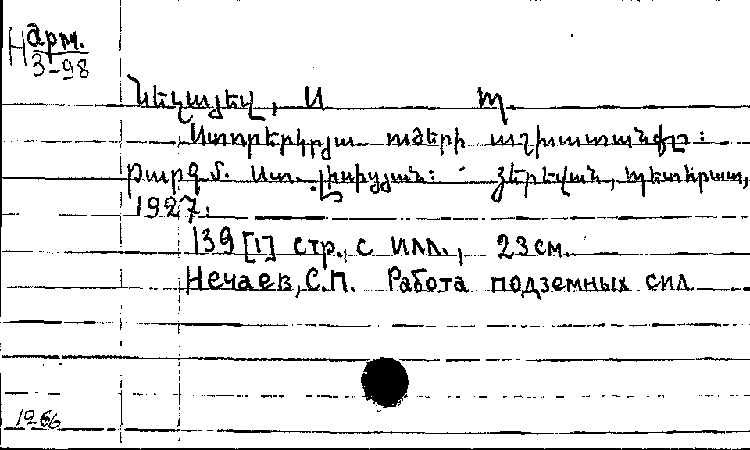 Н Арм.
3-98
Նեչայեվ, Ս Պ.
Ստորերկրյա ուժերի աշխատանքը։
Թարգմ. Ստ. Լիսիցյան։ Յերեվան, Պետհրատ,
1927։
139 [1] стр., с илл., 23 см.
Нечаев, С.П. Работа подземных сил